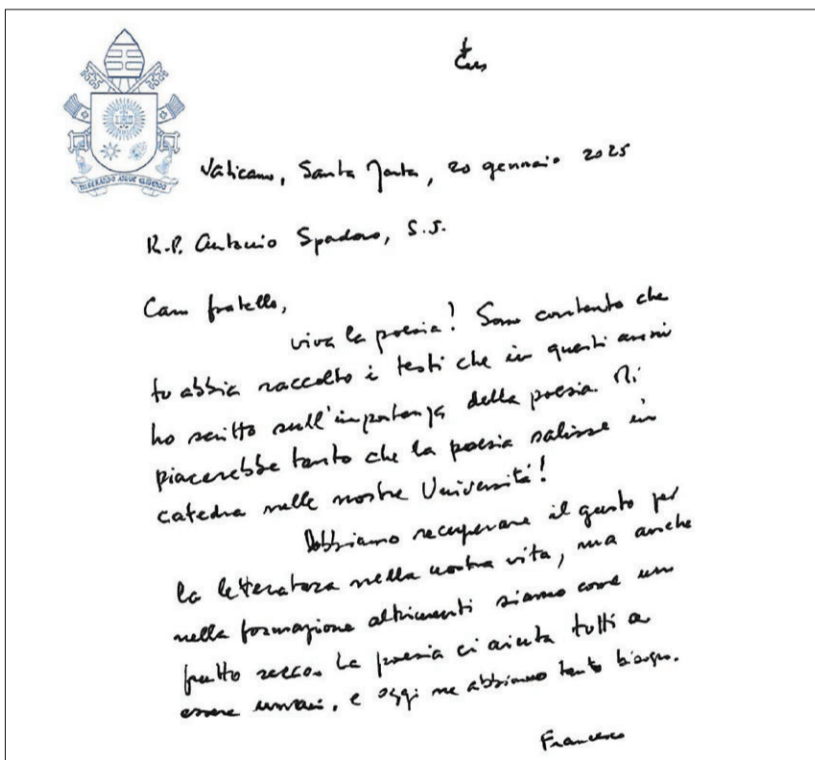 MISERANDO ATQUE ELIGENDO
Vaticano, Santa Marta, 20 gennaio 2025
R.P. Antonio Spadaro, S.J.
Caro fratello,
viva la poesia! Sono contento che
tu abbia raccolto i testi che in questi anni
ho scritto sull'importanza della poesia. Mi
piacerebbe tanto che la poesia salisse in
catedra nelle nostre Università!
Dobbiamo recuperare il gusto per
la letteratura nella nostra vita, ma anche
nella formazione altrimenti siamo come un
frutto secco. La poesia ci aiuta tutti a
essere umani, e oggi ne abbiamo tanto bisogno.
Francesco